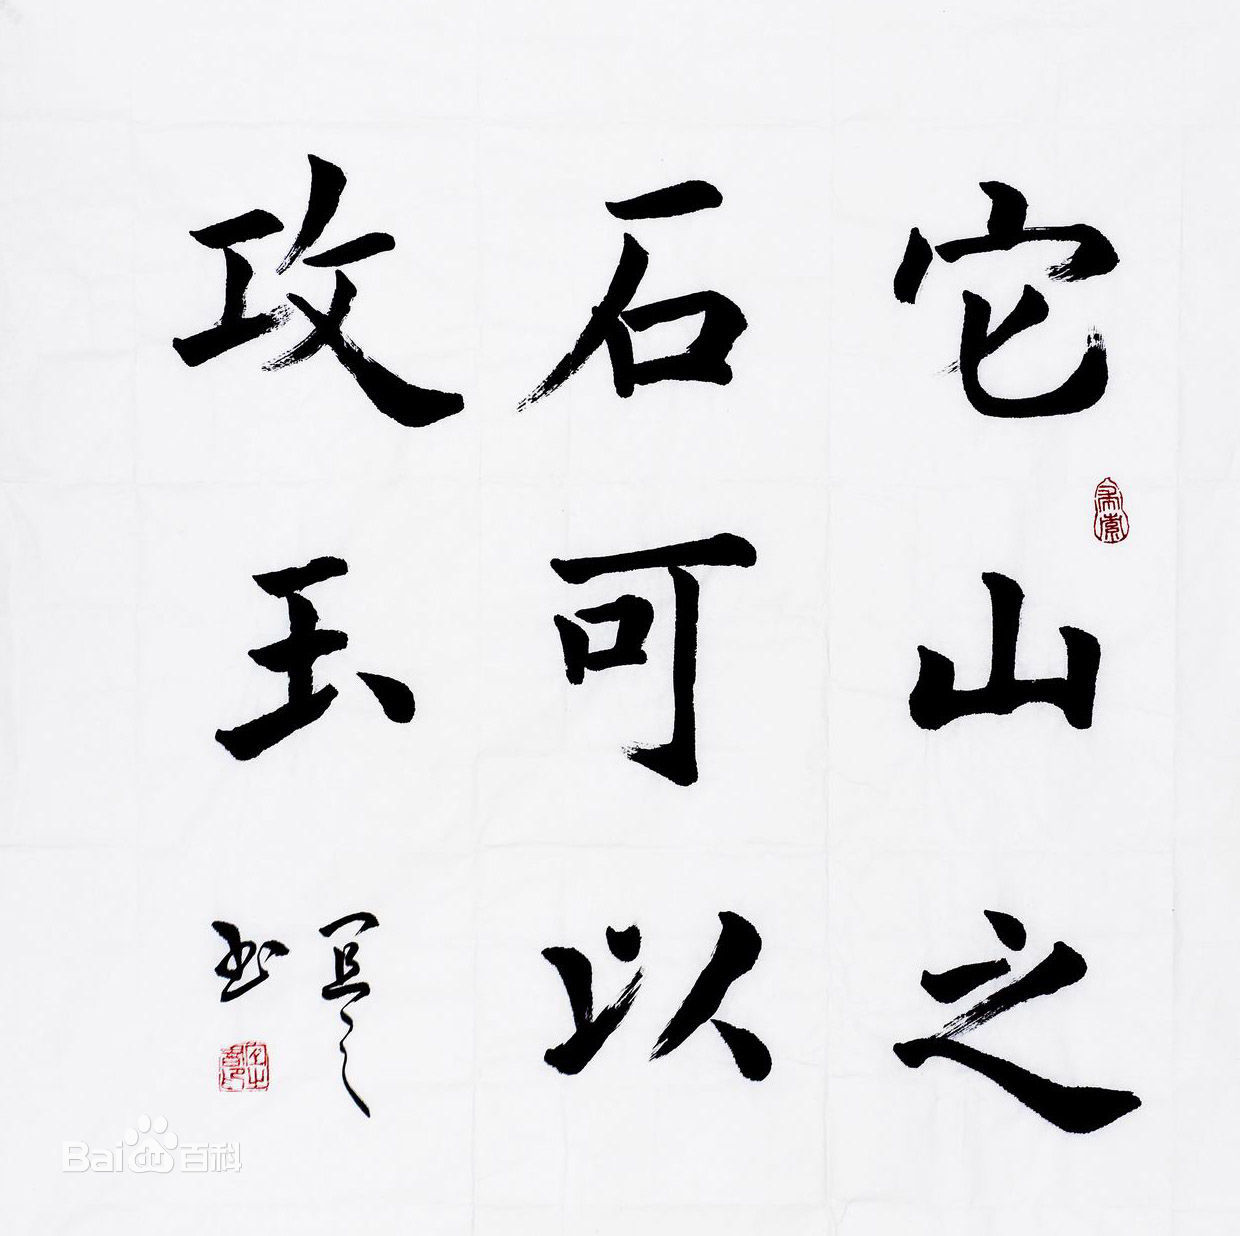 它山之
石可以
攻玉
宜之
书
Bai百科